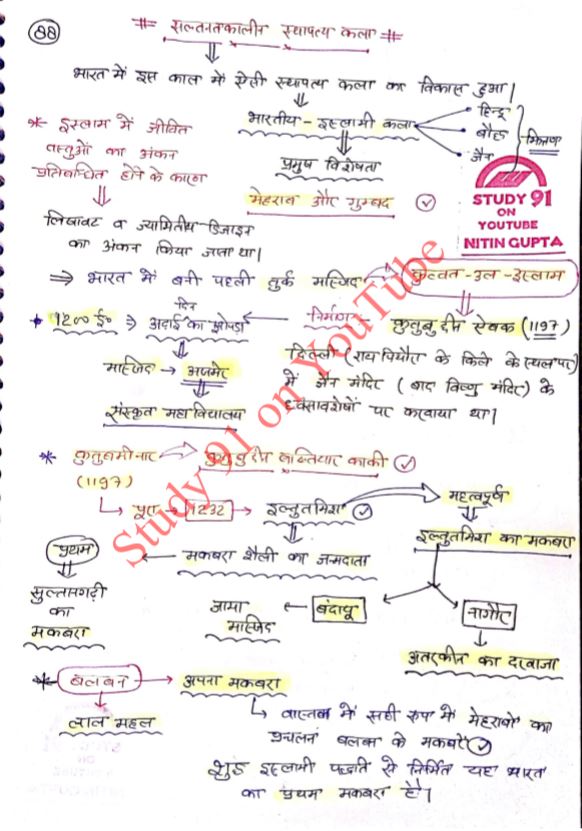 88
# सल्तनतकालीन स्थापत्य कला #
भारत में इस काल में ऐसी स्थापत्य कला का विकास हुआ।
* इस्लाम में जीवित
वस्तुओं का अंकन
प्रतिबन्धित होने के कारण
लिखावट व ज्यामितीय डिजाइन
का अंकन किया जाता था।
भारतीय - इस्लामी कला
हिन्दू
बौद्ध
जैन
मिश्रण
प्रमुख विशेषता
मेहराब और गुम्बद
STUDY 91
ON
YOUTUBE
NITIN GUPTA
⇒ भारत में बनी पहली तुर्क मस्जिद → कुव्वत-उल-इस्लाम
* 1200 ई० ⇒ अढाई दिन का झोपडा ← निर्माण ← कुतुबुद्दीन ऐबक (1197)
मस्जिद → अजमेर
संस्कृत महाविद्यालय
दिल्ली (रायपिथौरा के किले के स्थल पर)
में जैन मंदिर (बाद विष्णु मंदिर) के
ध्वंसावशेषों पर करवाया था।
* कुतुबमीनार → कुतुबुद्दीन बख्तियार काकी
(1197)
पूरा → 1232 → इल्तुतमिश → महत्वपूर्ण
इल्तुतमिश का मकबरा
प्रथम ← मकबरा शैली का जन्मदाता
सुल्तानगढ़ी
का
मकबरा
जामा
मस्जिद
← बंदायू
नागौर
अतरकीन का दरवाजा
* बलबन → अपना मकबरा
लाल महल
वास्तव में सही रूप में मेहराबों का
प्रचलन बलबन के मकबरे
शुद्ध इस्लामी पद्धति से निर्मित यह भारत
का प्रथम मकबरा है।
Study 91 on YouTube